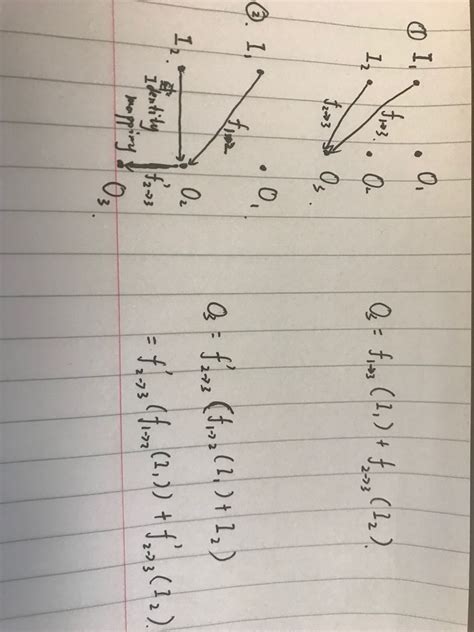 ①
I₁ O₁
I₂ O₂
f₁→₃
f₂→₃
O₃
O₃ = f₁→₃(I₁) + f₂→₃(I₂).
②. I₁ O₁
f₁→₂
I₂. O₂
Identity
mapping
f'₂→₃
O₃.
O₃ = f'₂→₃(f₁→₂(I₁) + I₂)
= f'₂→₃(f₁→₂(I₁)) + f'₂→₃(I₂).